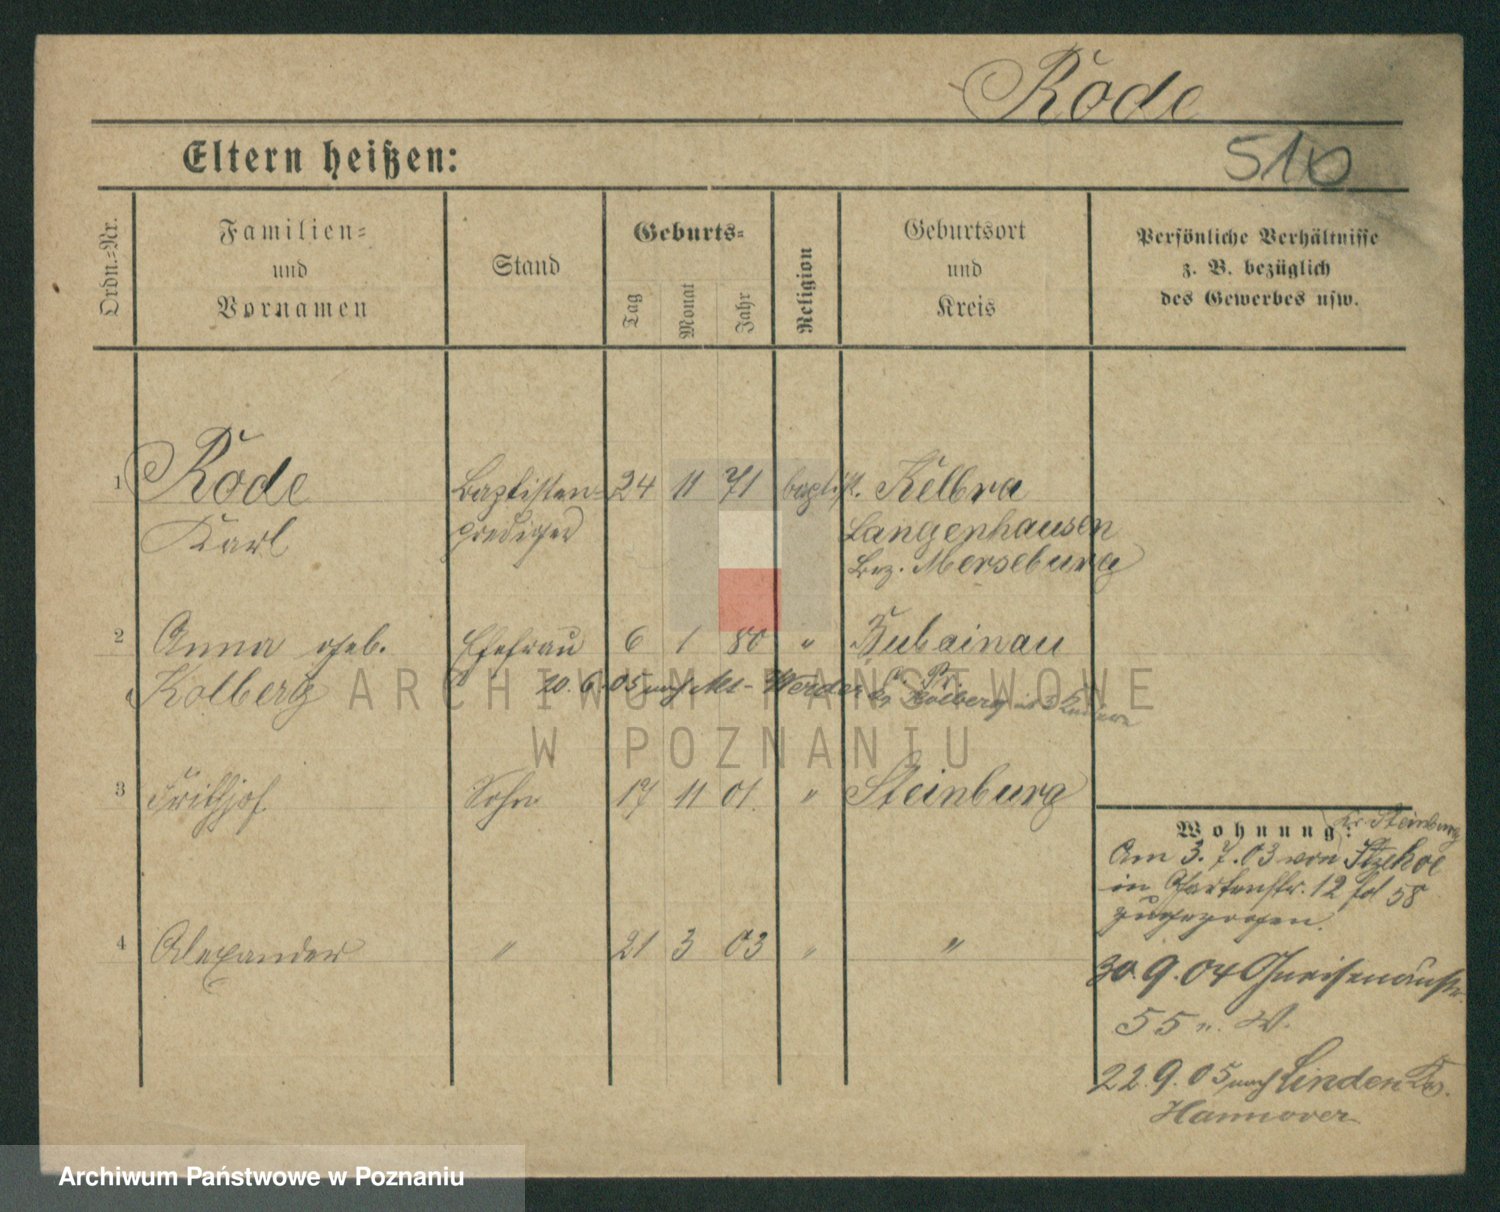 Rode
510
Eltern heißen:
Ordn.-Nr.
Familien-
und
Vornamen
Stand
Geburts-
Tag
Monat
Jahr
Religion
Geburtsort
und
Kreis
Persönliche Verhältnisse
z. B. bezüglich
des Gewerbes usw.
1 Rode Baptisten- 24 11 71 baptist. Kelbra
Karl prediger Langenhausen
Bez. Merseburg
2 Anna geb. Ehefrau 6 1 80 " Zubainau
Kolberg 20.6.05 nach Alt-Werder
Kr Kolberg
3 Frithjof Sohn 17 11 01. " Steinburg
4 Alexander " 21 3 03 " "
Wohnung: Kr Steinburg
Am 3.7.03 von Itzehoe
in Gartenstr. 12 58
zugezogen.
30.9.04 Gneisenaustr.
55 W.
22.9.05 nach Linden Kr.
Hannover
ARCHIWUM PAŃSTWOWE
W POZNANIU
Archiwum Państwowe w Poznaniu